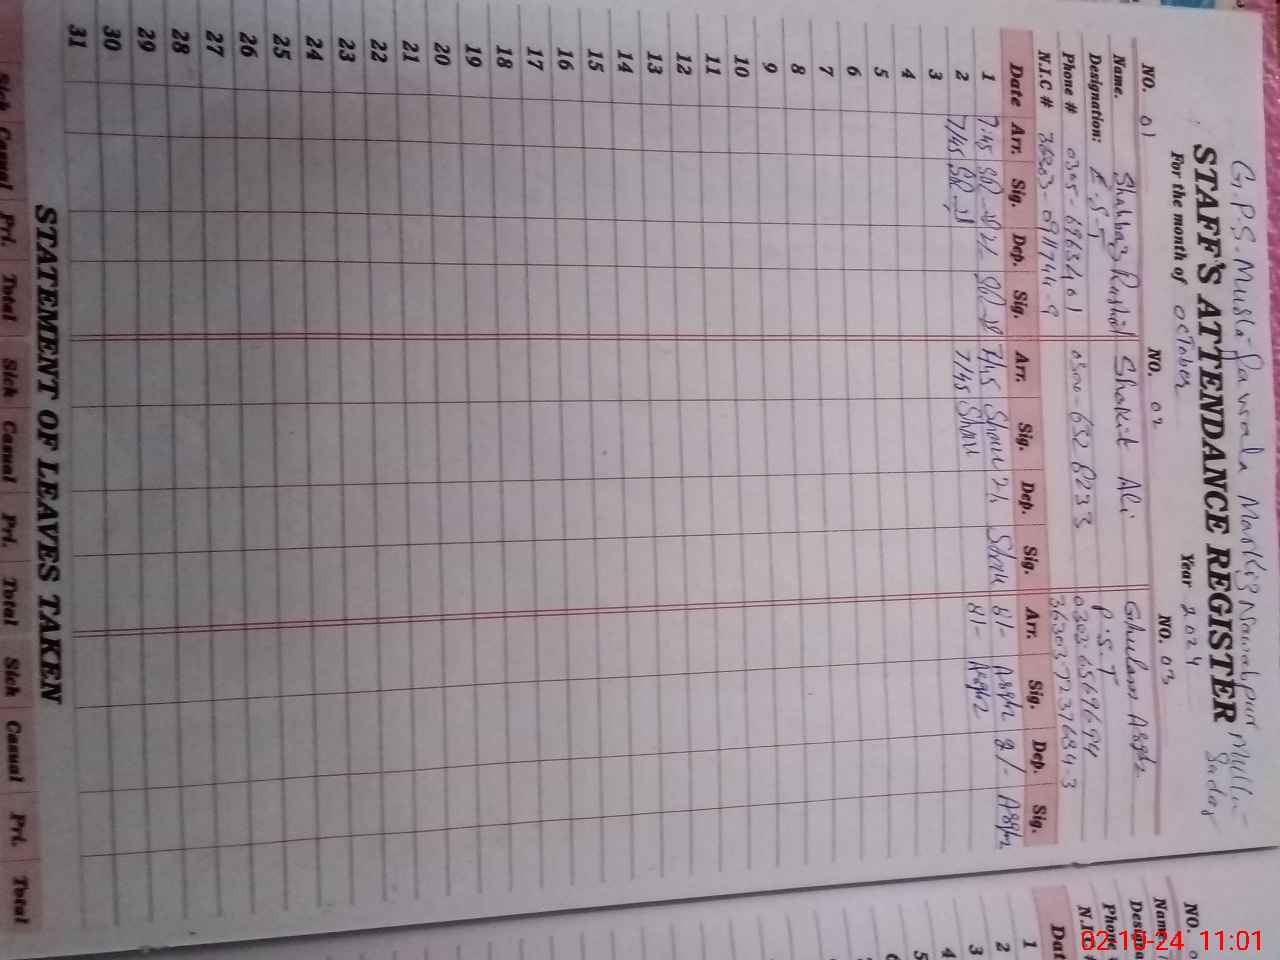 G.P.S. Mustafa wala Markiz Nawabpur Multan Sadar
STAFF'S ATTENDANCE REGISTER
For the month of October Year 2024
NO. 01 NO. 02 NO. 03
Name. Shahbaz Rashid Shakir Ali Ghulam Asghr
Designation: E.S.T P.S.T
Phone # 0305-6963401 0300-6328233 0303-6569694
N.I.C # 36303-0911744-9 36303-7237684-3
Date Arr. Sig. Dep. Sig. Arr. Sig. Dep. Sig. Arr. Sig. Dep. Sig.
1 7:45 2/- 7/45 2/- 8/- Asghr 2/- Asghr
2 7/45 7/45 8/- Asghr
3
4
5
6
7
8
9
10
11
12
13
14
15
16
17
18
19
20
21
22
23
24
25
26
27
28
29
30
31
STATEMENT OF LEAVES TAKEN
Sick Casual Pri. Total Sick Casual Pri. Total Sick Casual Pri. Total
NO.
Name.
Phone
N.I.
Dat
1
2
3
4
5
02-10-24 11:01